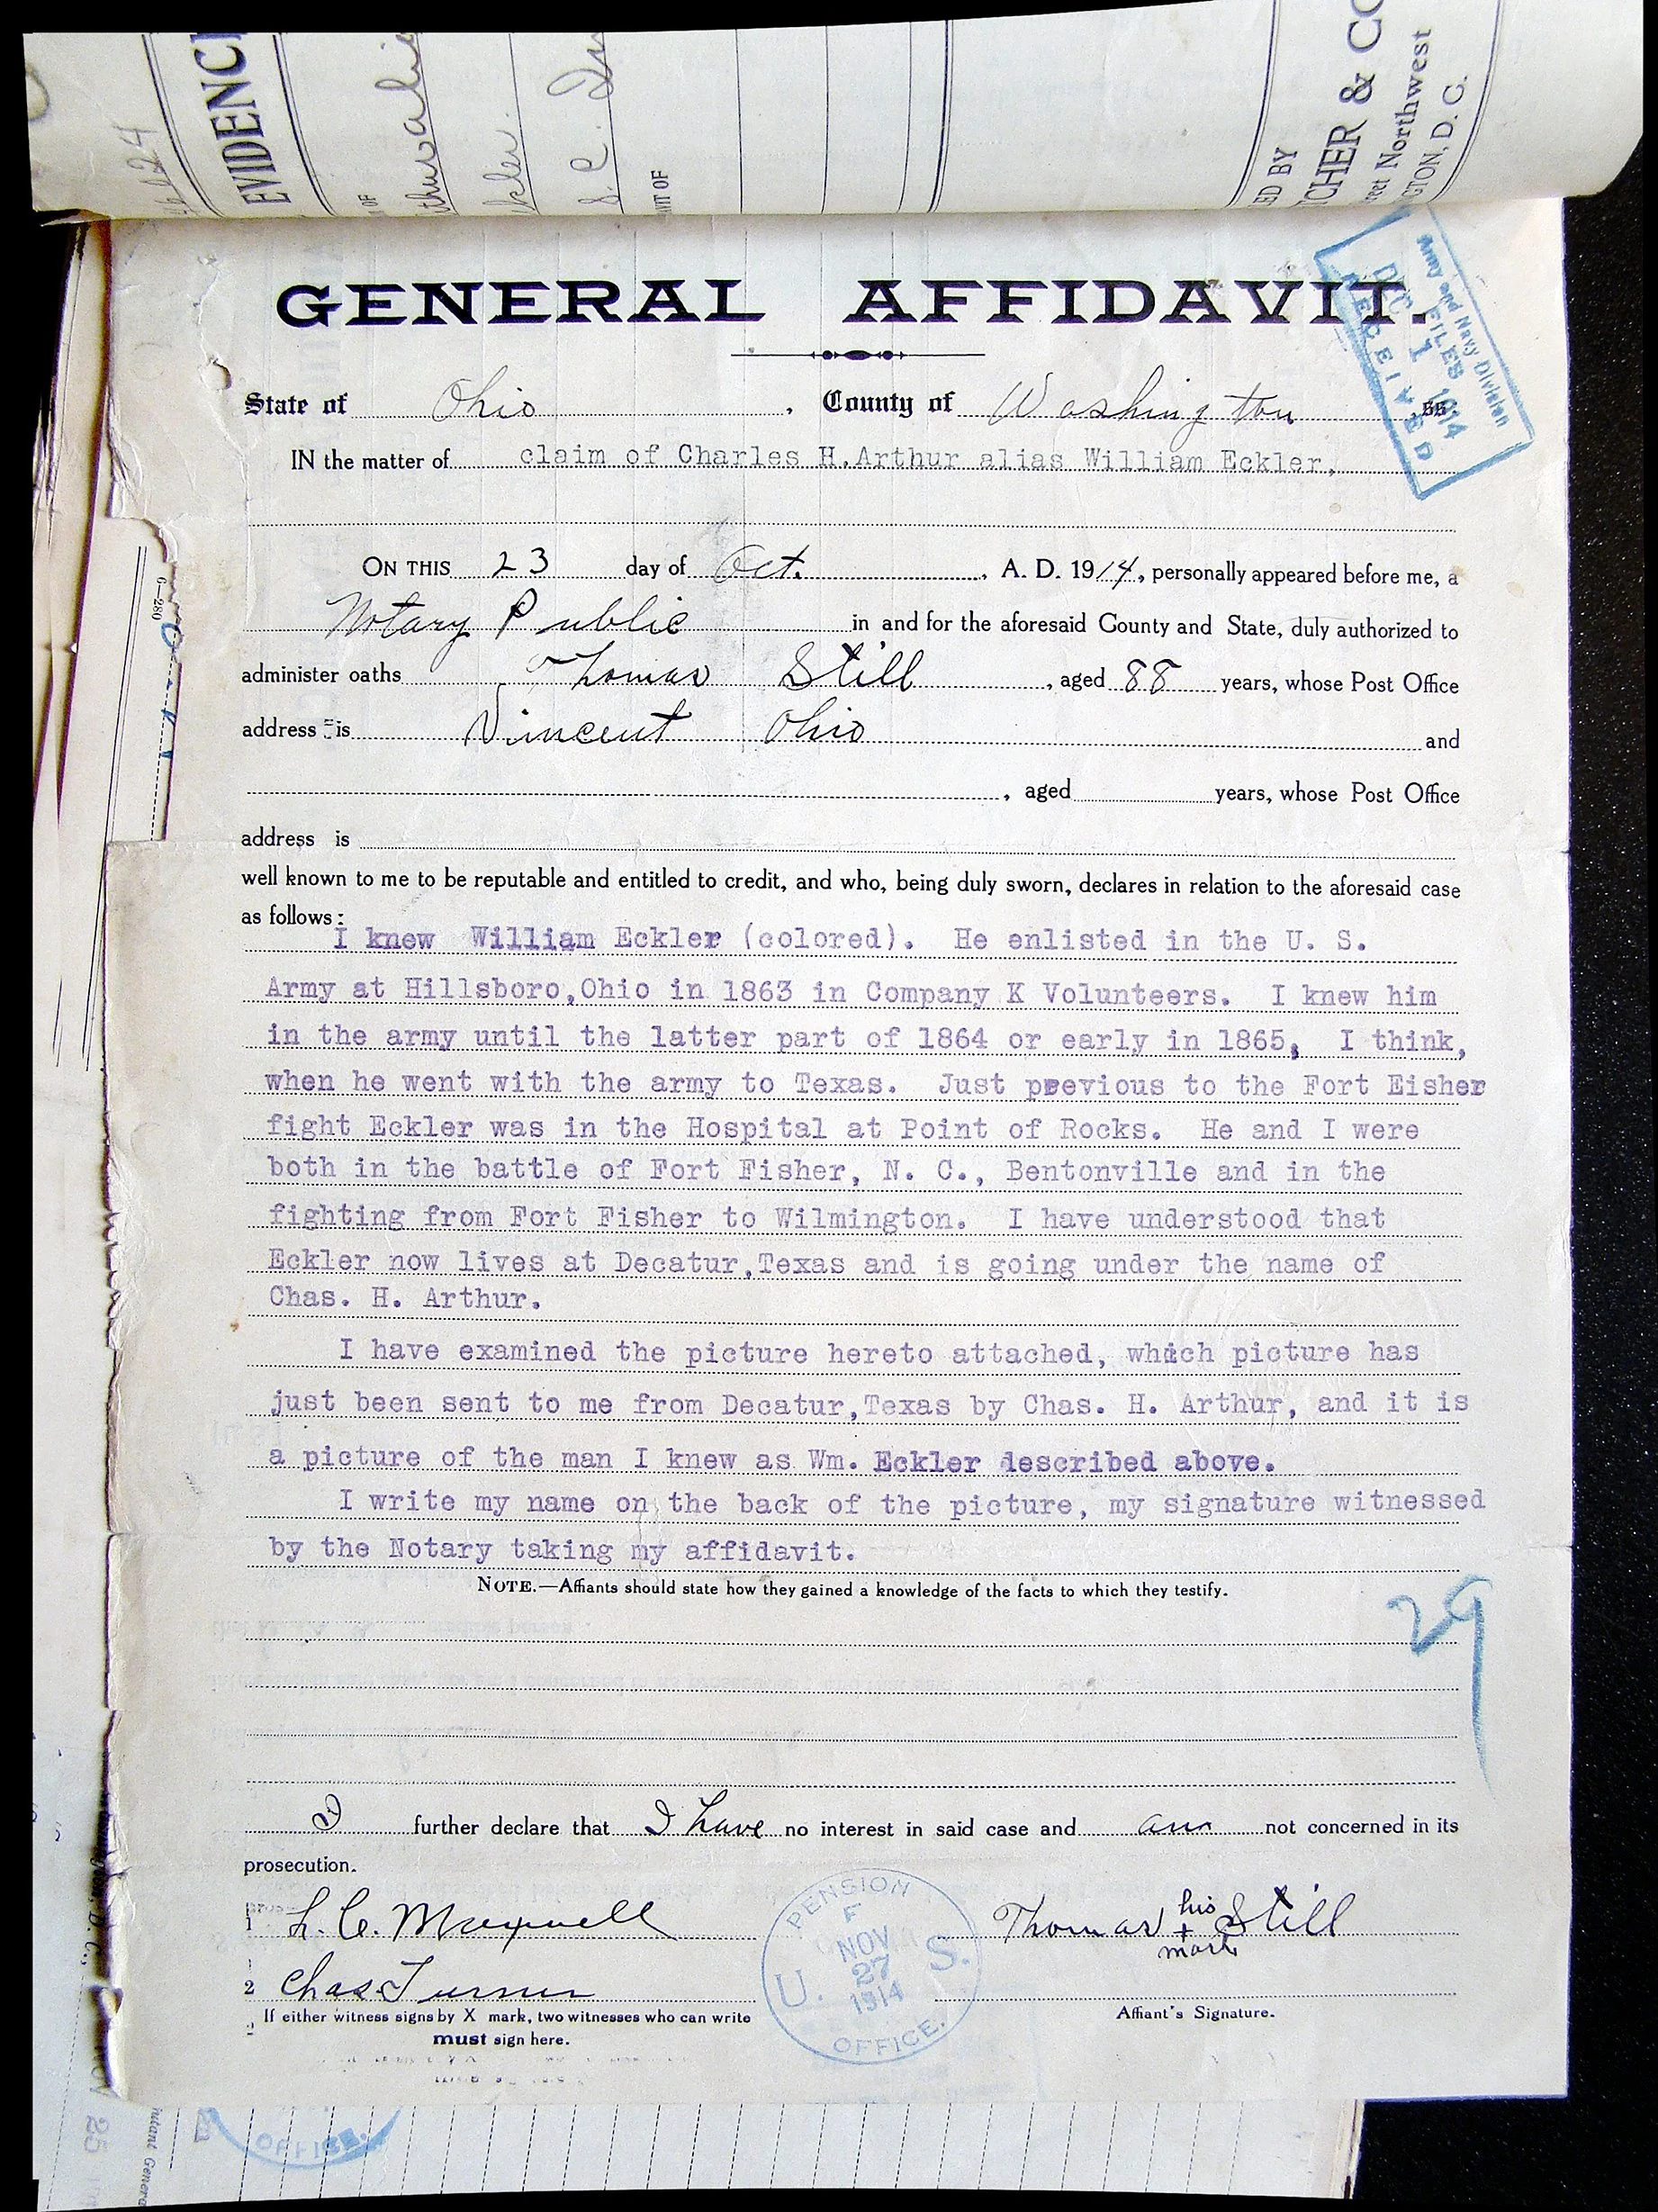 EVIDENC
S. C.
ED BY
CHER & CO
reet Northwest
GTON, D. C.
GENERAL AFFIDAVIT.
Army and Navy Division
FILES
DEC 1 1914
RECEIVED
State of Ohio, County of Washington, SS:
IN the matter of claim of Charles H.Arthur alias William Eckler,
ON THIS 23 day of Oct., A. D. 1914, personally appeared before me, a
Notary Public in and for the aforesaid County and State, duly authorized to
administer oaths Thomas Still, aged 88 years, whose Post Office
address is Vincent Ohio and
, aged years, whose Post Office
address is
well known to me to be reputable and entitled to credit, and who, being duly sworn, declares in relation to the aforesaid case
as follows:
I knew William Eckler (colored). He enlisted in the U. S.
Army at Hillsboro,Ohio in 1863 in Company K Volunteers. I knew him
in the army until the latter part of 1864 or early in 1865, I think,
when he went with the army to Texas. Just previous to the Fort Eisher
fight Eckler was in the Hospital at Point of Rocks. He and I were
both in the battle of Fort Fisher, N. C., Bentonville and in the
fighting from Fort Fisher to Wilmington. I have understood that
Eckler now lives at Decatur,Texas and is going under the name of
Chas. H. Arthur.
I have examined the picture hereto attached, which picture has
just been sent to me from Decatur,Texas by Chas. H. Arthur, and it is
a picture of the man I knew as Wm. Eckler described above.
I write my name on the back of the picture, my signature witnessed
by the Notary taking my affidavit.
NOTE.—Affiants should state how they gained a knowledge of the facts to which they testify.
29
I further declare that I have no interest in said case and am not concerned in its
prosecution.
1 L. C. Maxwell
Thomas his + mark Still
2 Chas Turner
If either witness signs by X mark, two witnesses who can write
must sign here.
Affiant's Signature.
PENSION
F
NOV
27
1914
U. S.
OFFICE.
6—280
OFFICE.
25